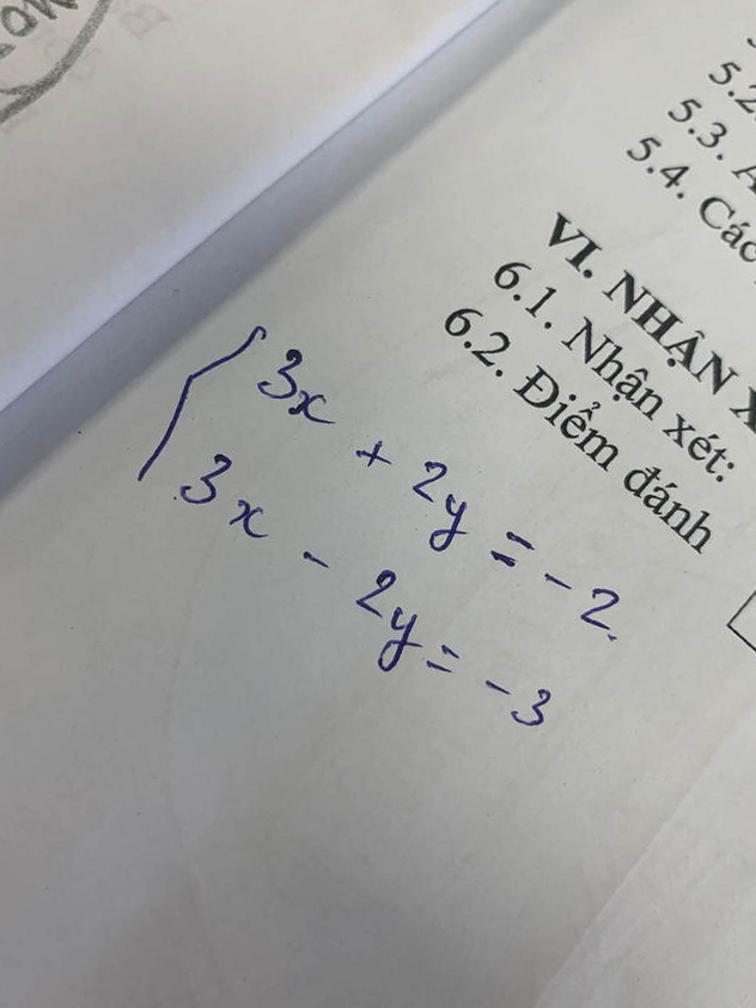 5.2.
5.3. A
5.4. Các
VI. NHẬN X
6.1. Nhận xét:
6.2. Điểm đánh
3x + 2y = -2.
3x - 2y = -3